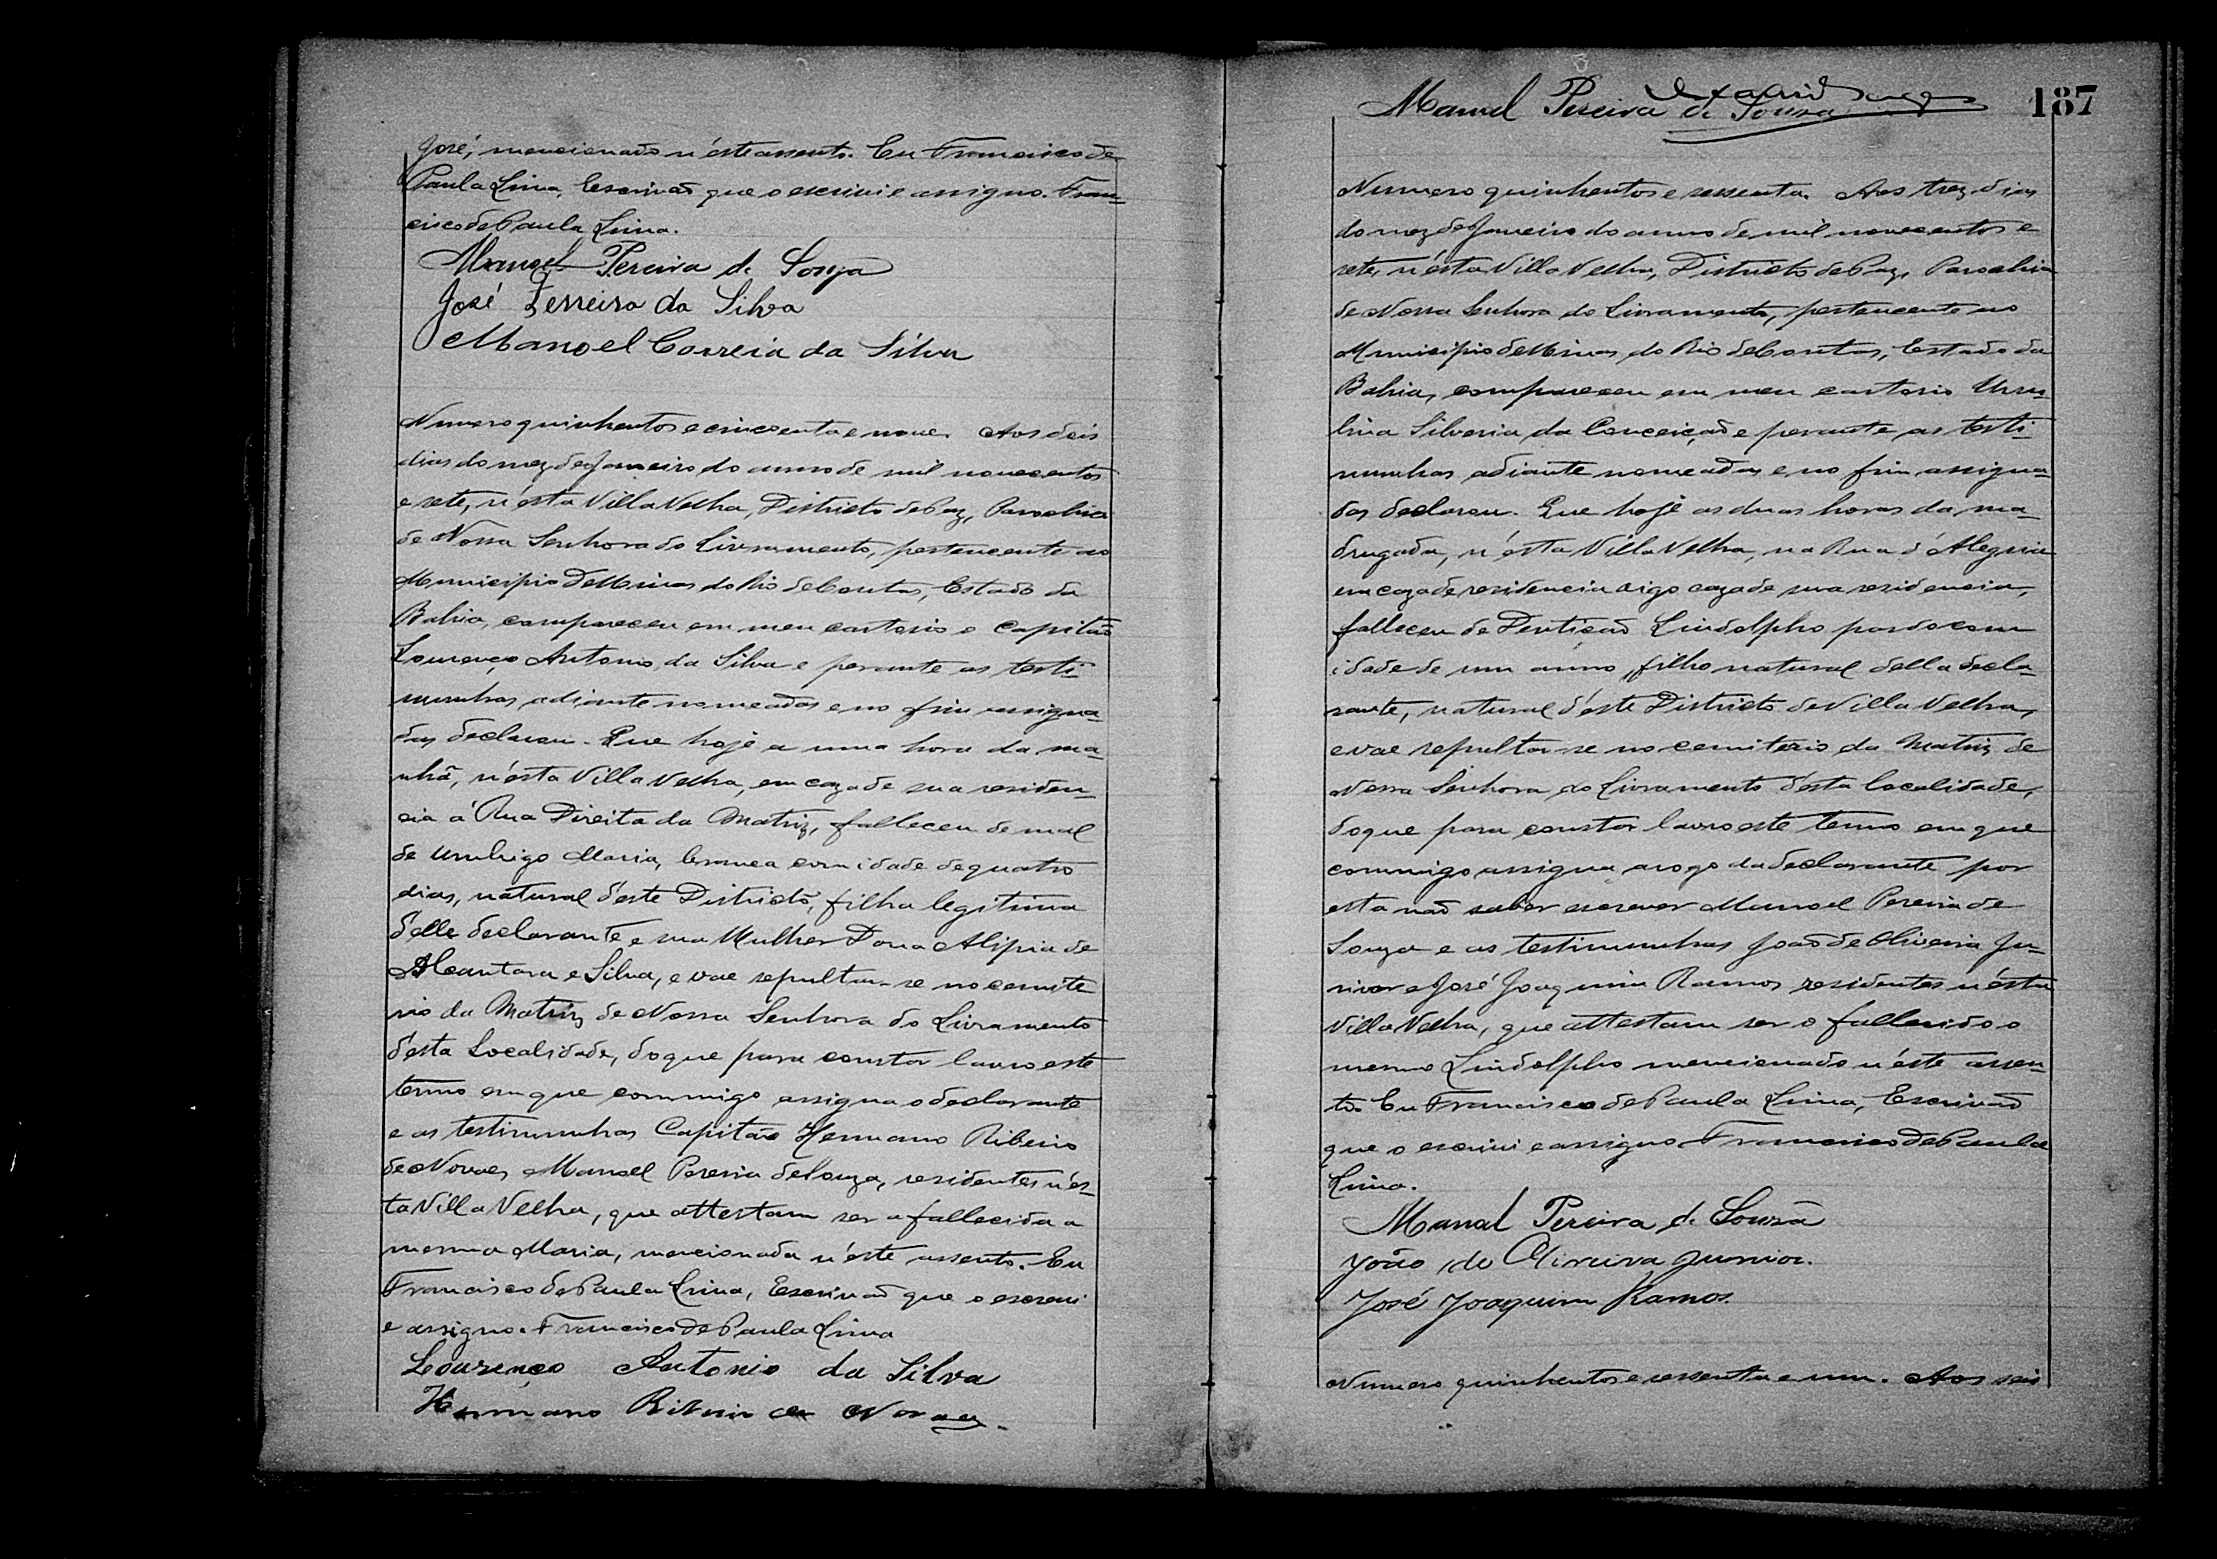 José, mencionado n'éste assento. Eu Francisco de
Paula Lima, Escrivaõ que o escrivi e assigno. Fran-
cisco de Paula Lima.
Manoel Pereira de Souza
José Ferreira da Silva
Manoel Correia da Silva
Numero quinhentos e cincoenta e nove. Aos dois
dias do mez de Janeiro do anno de mil novecentos
e sete, n'ésta Villa Velha, Districto de Paz, Parochia
de Nossa Senhora do Livramento, pertencente ao
Municipio de Minas do Rio de Contas, Estado da
Bahia, compareceu em meu cartorio o Capitaõ
Lourenço Antonio da Silva e perante as testi-
munhas adiante nomeadas e no fim assigna-
das declarou. Que hoje a uma hora da ma-
nhã, n'ésta Villa Velha, em caza de sua residen-
cia á Rua Direita da Matriz, falleceu de mal
de umbigo Maria, branca com idade de quatro
dias, natural d'éste Districto, filha legitima
d'elle declarante e sua Mulher Dona Alipia de
Alcantara e Silva, e vae sepultar-se no cemite-
rio da Matriz de Nossa Senhora do Livramento
d'ésta Localidade, do que para constar lavro este
termo em que commigo assigna o declarante
e as testimunhas Capitão Hermano Ribeiro
de Novaes e Manoel Pereira de Souza, residentes n'és-
ta Villa Velha, que attestam ser a fallecida a
mesma Maria, mencionada n'éste assento. Eu
Francisco de Paula Lima, Escrivaõ que o escrevi
e assigno. Francisco de Paula Lima
Lourenço Antonio da Silva
Hermano Ribeiro de Novaes.
187
Manoel Pereira de Souza
Numero quinhentos e sessenta. Aos trez dias
do mez de Janeiro do anno de mil novecentos e
sete, n'ésta Villa Velha, Districto de Paz, Parochia
de Nossa Senhora do Livramento, pertencente ao
Municipio de Minas do Rio de Contas, Estado da
Bahia, compareceu em meu cartorio Ursu-
lina Silveria da Conceiçaõ e perante as testi-
munhas adiante nomeadas e no fim assigna-
das declarou. Que hoje as duas horas da ma-
drugada, n'ésta Villa Velha, na Rua d'Alegria
em caza de residencia digo caza de sua residencia,
falleceu de Dentiçaõ Lindolpho pardo com
idade de um anno, filho natural della decla-
rante, natural d'éste Districto de Villa Velha,
e vae sepultar-se no cemiterio da Matriz de
Nossa Senhora do Livramento d'ésta localidade,
do que para constar lavro este termo em que
commigo assigna a rogo da declarante por
esta naõ saber escrever Manoel Pereira de
Souza e as testimunhas João de Oliveira Ju-
nior e José Joaquim Ramos residentes n'ésta
Villa Velha, que attestam ser o fallecido o
mesmo Lindolpho mencionado n'éste assen-
to. Eu Francisco de Paula Lima, Escrivaõ
que o escrivi e assigno Francisco de Paula
Lima.
Manoel Pereira de Souza
João de Oliveira Junior.
José Joaquim Ramos.
Numero quinhentos e sessenta e um. Aos seis